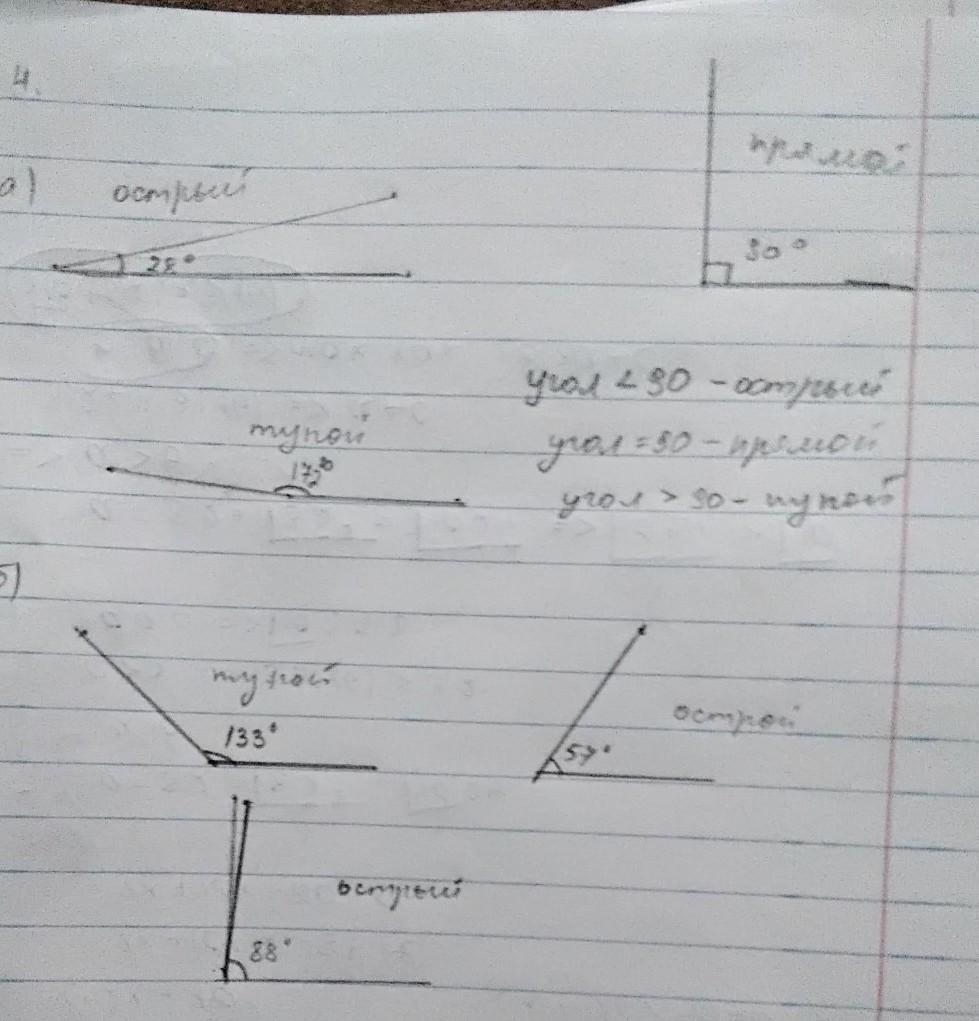 4.
прямой
а) острый
90°
28°
угол < 90 - острый
тупой
угол = 90 - прямой
угол > 90 - тупой
б)
тупой
острой
133°
57°
острый
88°